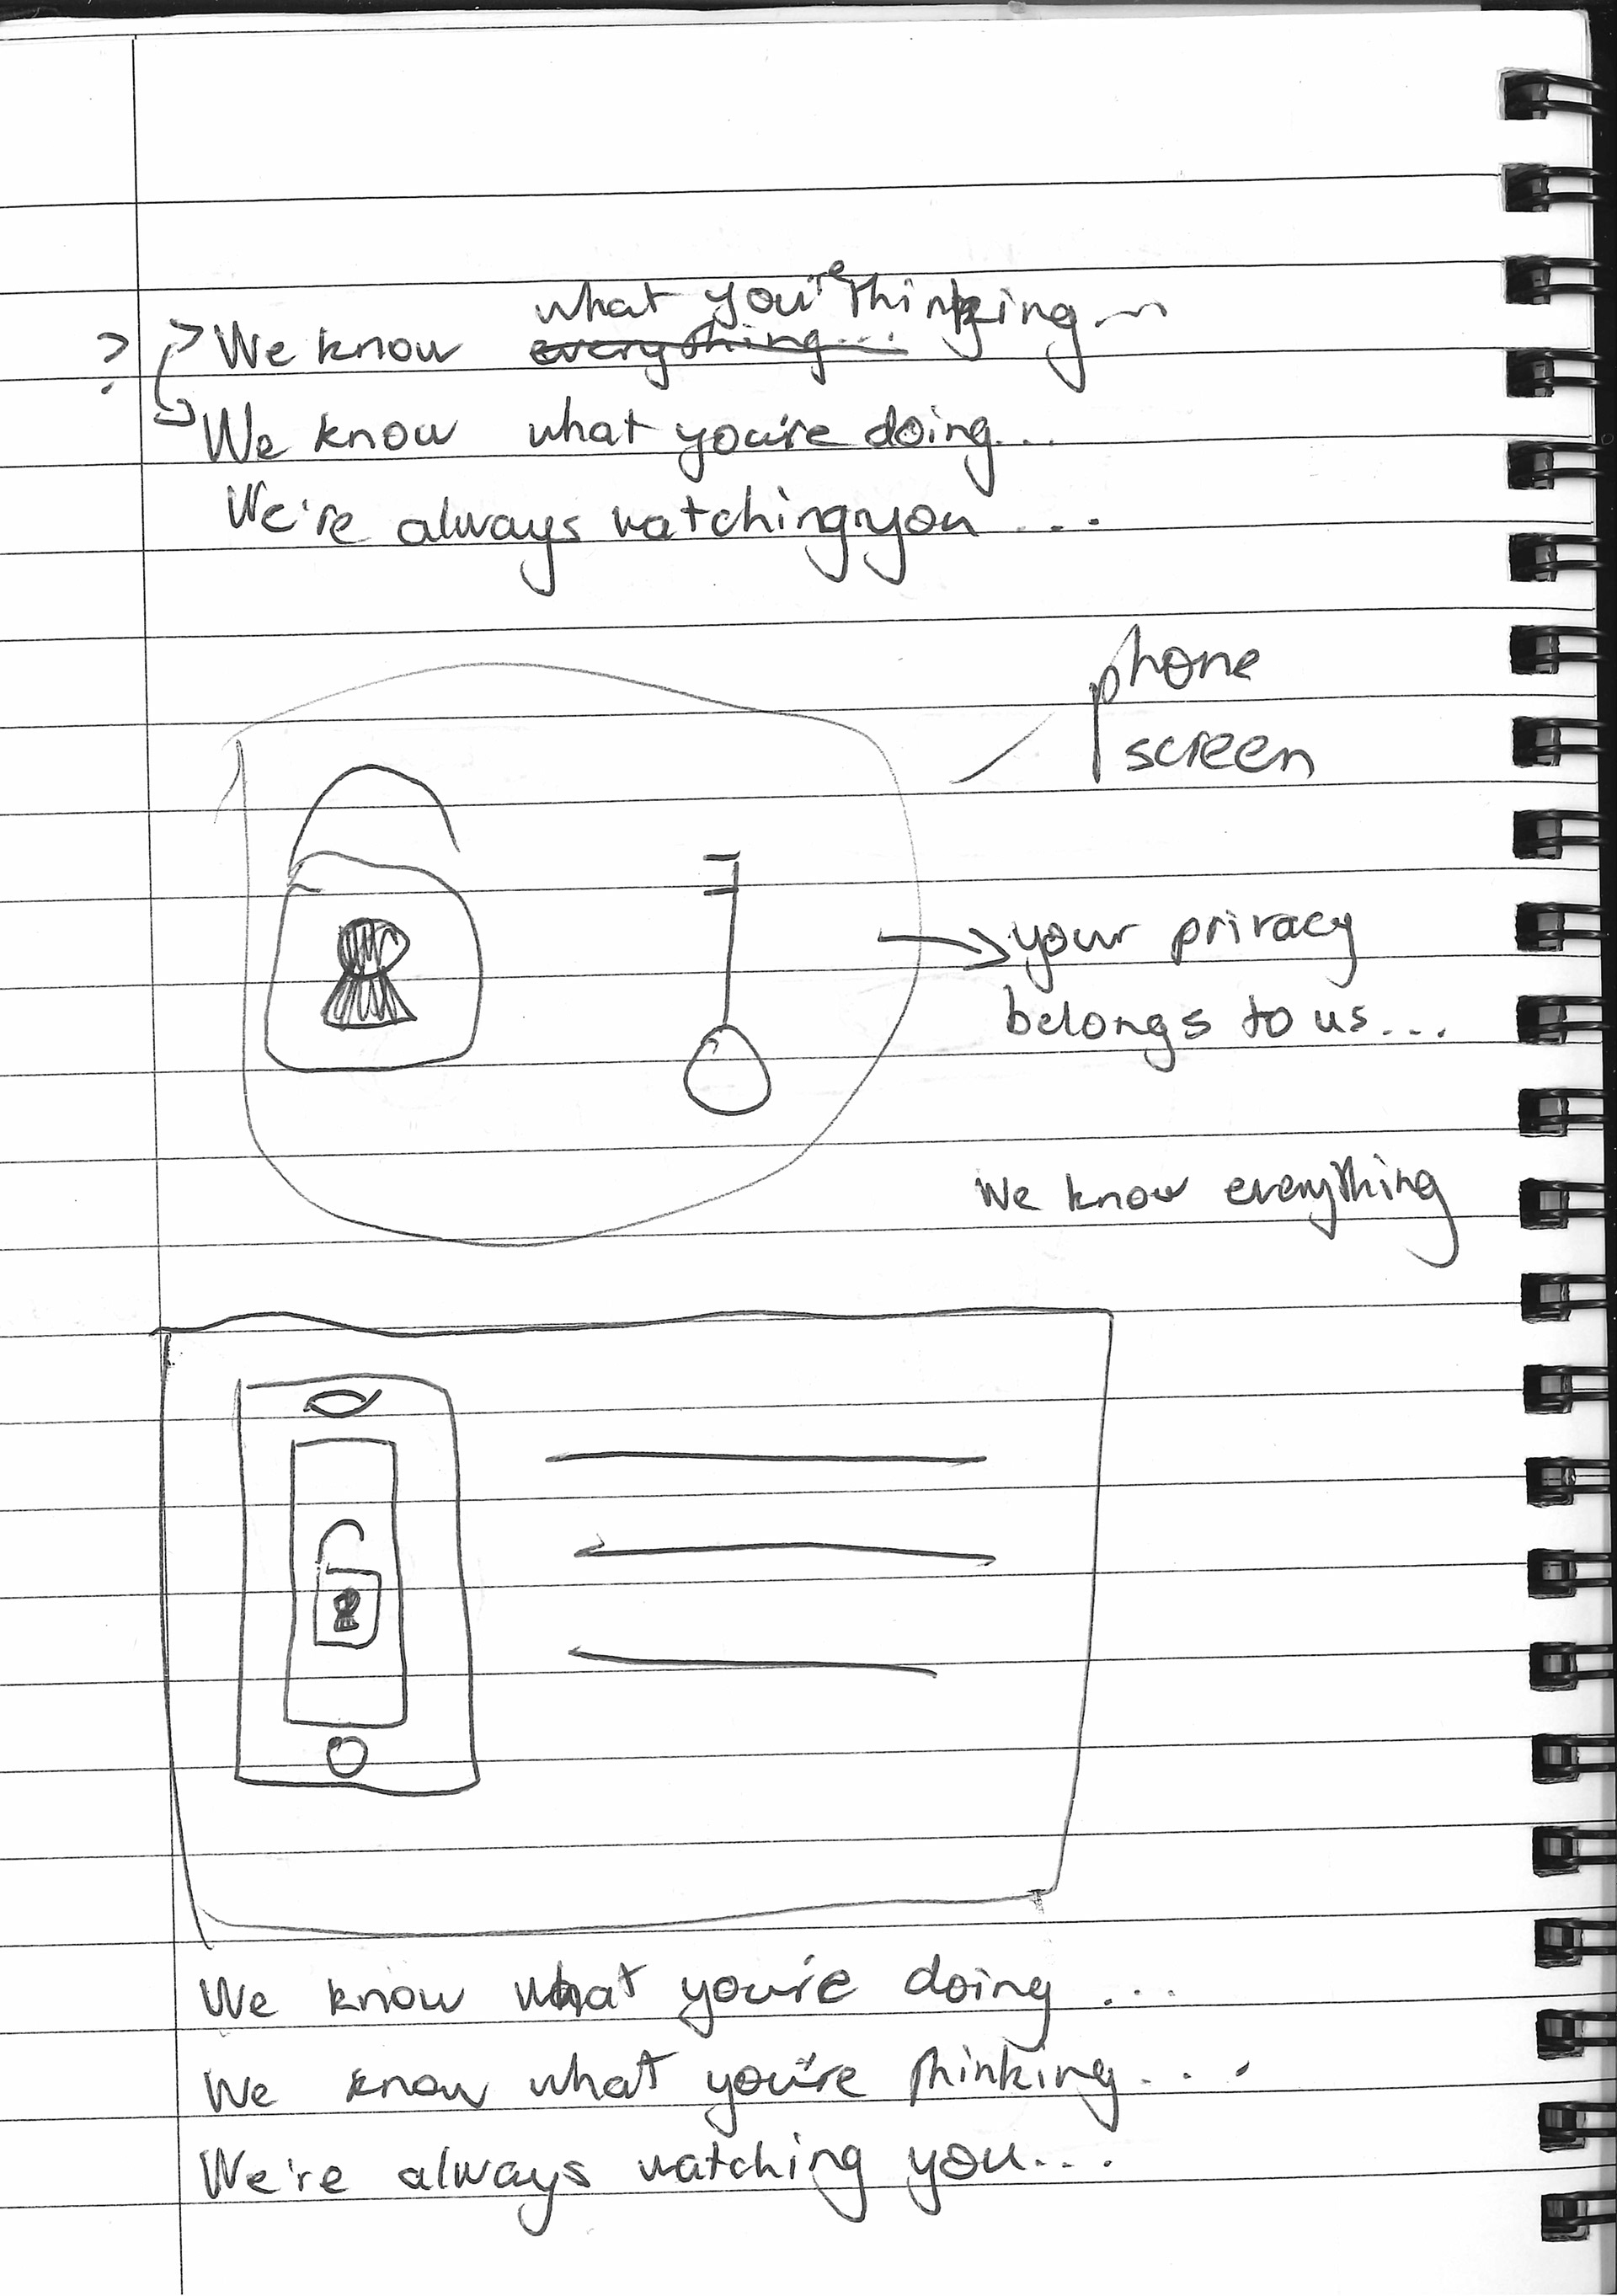 what you're thinking...
? We know everything...
We know what you're doing...
We're always watching you....
phone
screen
your privacy
belongs to us...
We know everything
We know what you're doing...
We know what you're thinking...
We're always watching you...